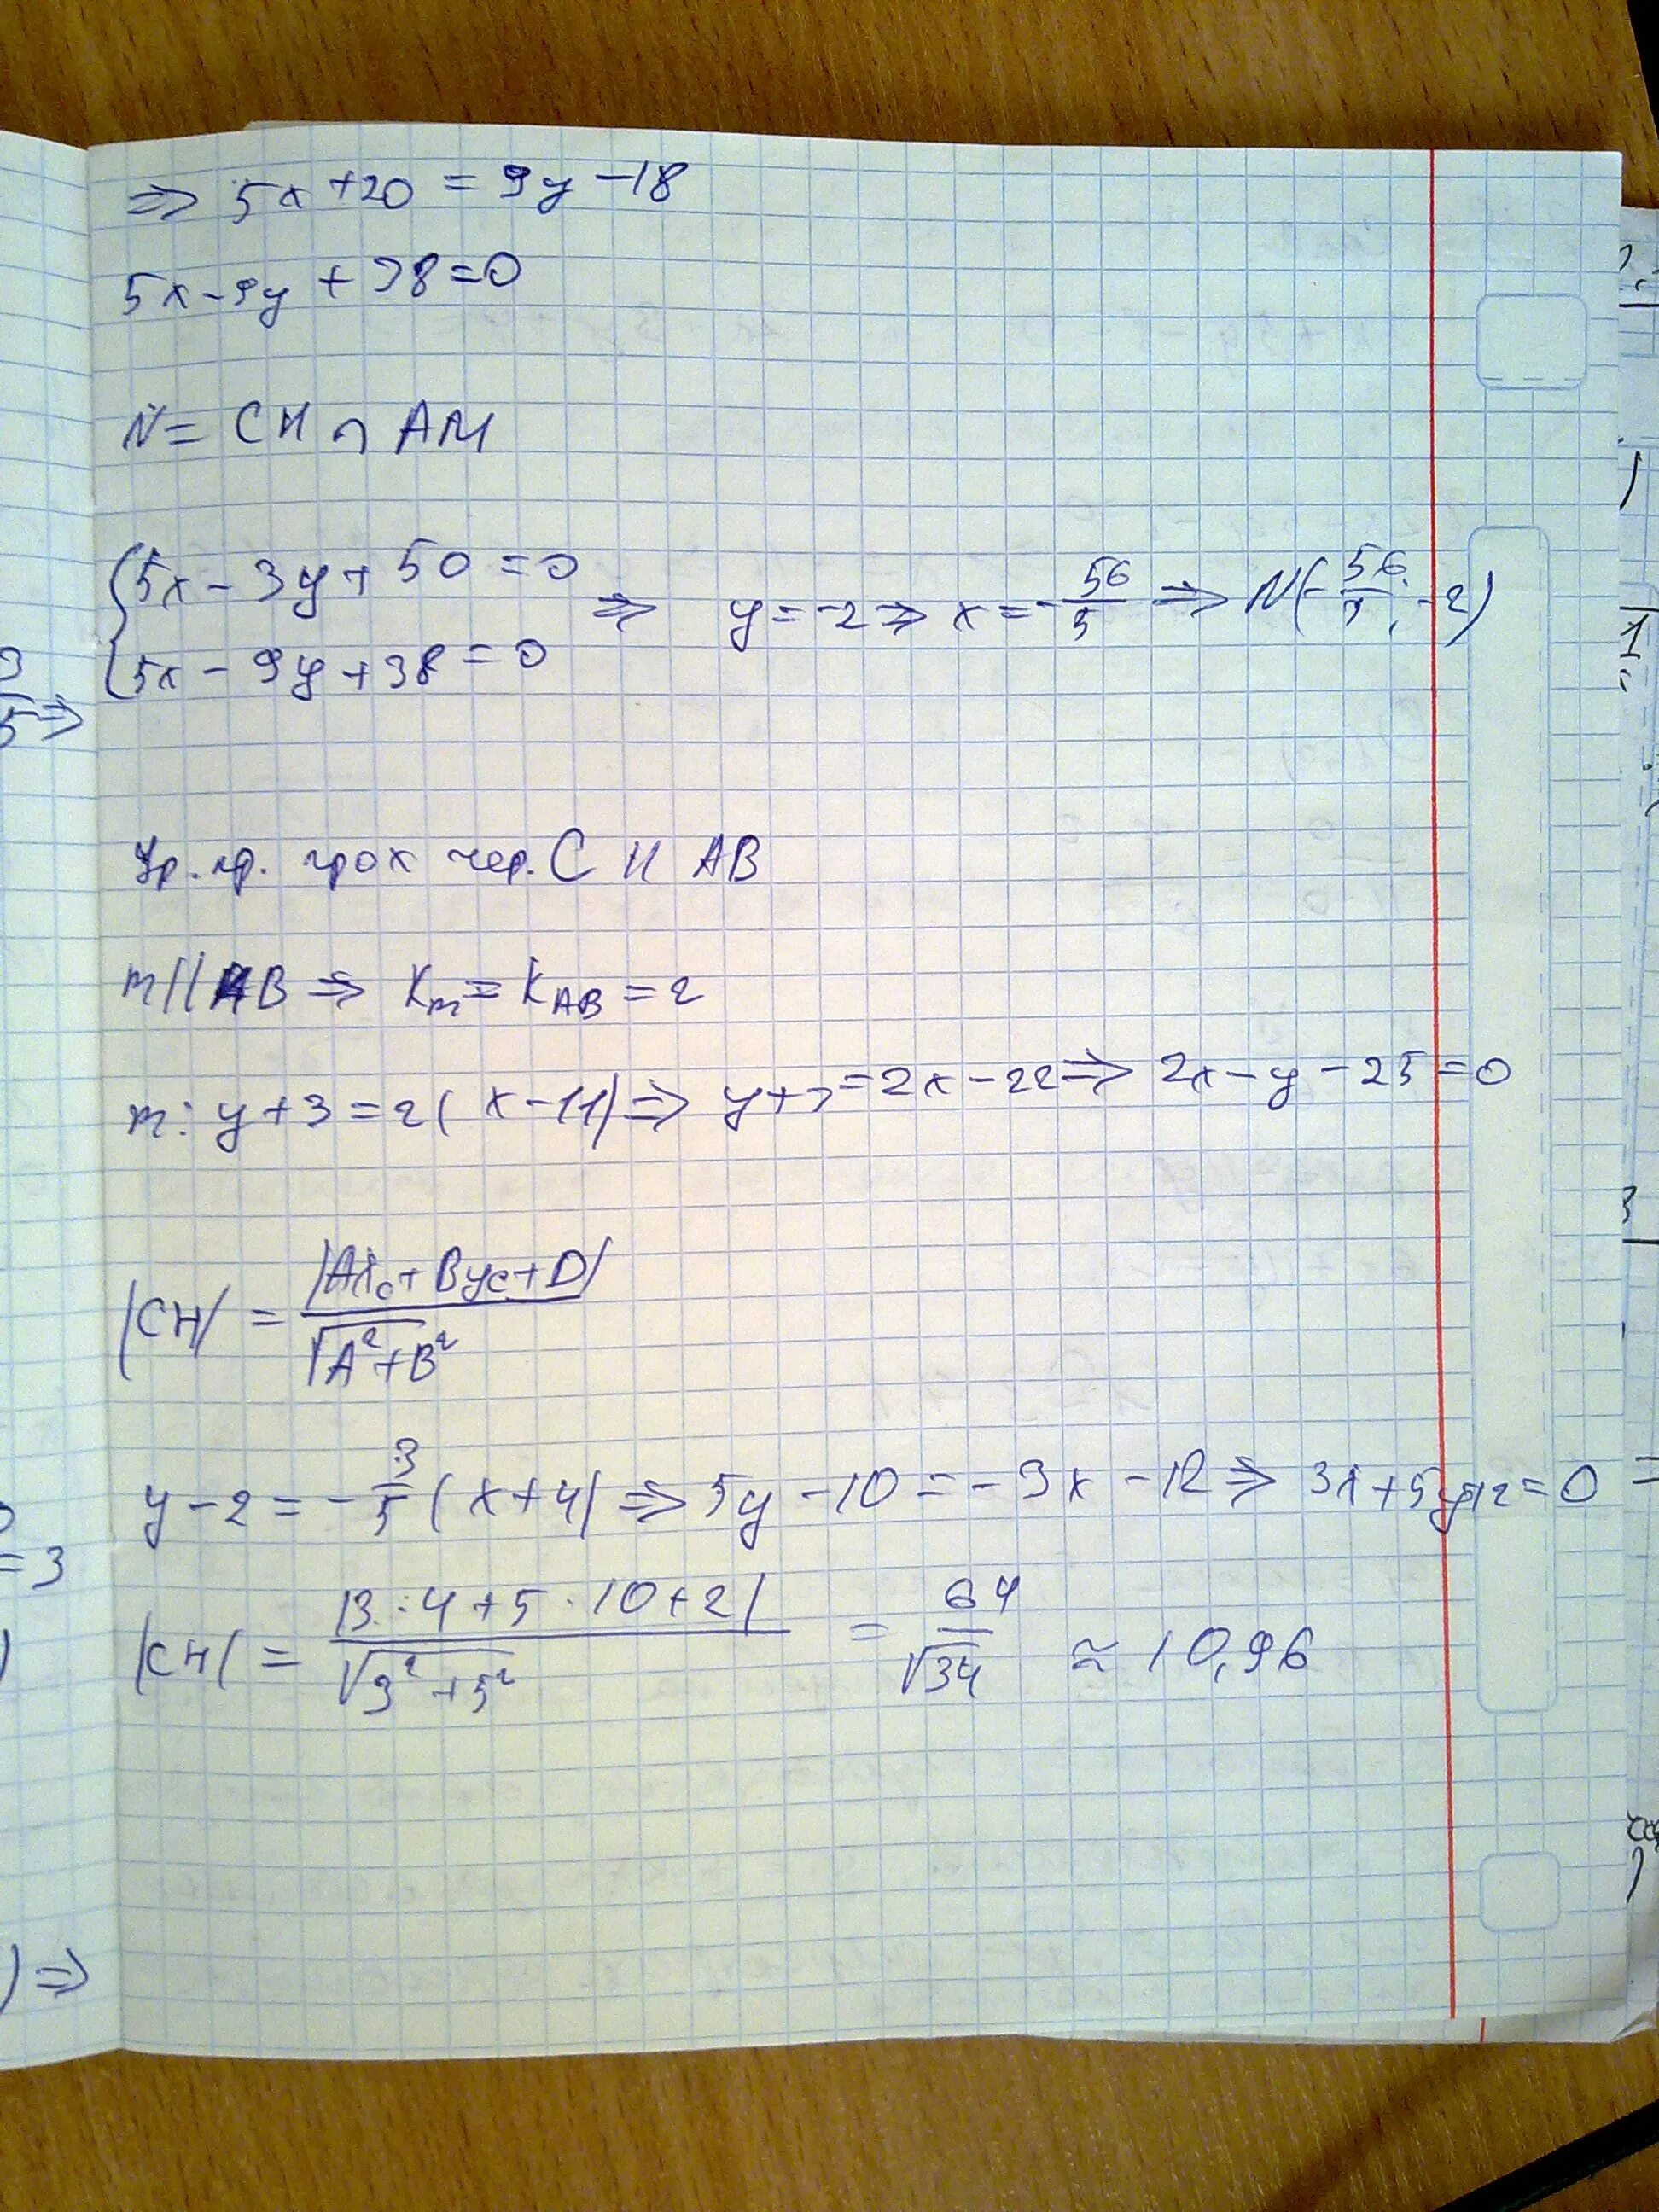 ⇒ 5x + 20 = 9y - 18
5x - 9y + 38 = 0
N = CH ∩ AM
{ 5x - 3y + 50 = 0
{ 5x - 9y + 38 = 0
⇒ y = -2 ⇒ x = -56/5 ⇒ N(-56/5; -2)
Ур. пр. прох чер. C || AB
m || AB ⇒ Km = KAB = 2
m: y + 3 = 2(x - 11) ⇒ y + 3 = 2x - 22 ⇒ 2x - y - 25 = 0
|CH| = |Axc + Byc + D| / √A² + B²
y - 2 = -3/5 (x + 4) ⇒ 5y - 10 = -3x - 12 ⇒ 3x + 5y + 2 = 0 =
|CH| = |3 · 4 + 5 · 10 + 2| / √3² + 5² = 64 / √34 ≈ 10,96
5 ⇒
= 3
) ⇒